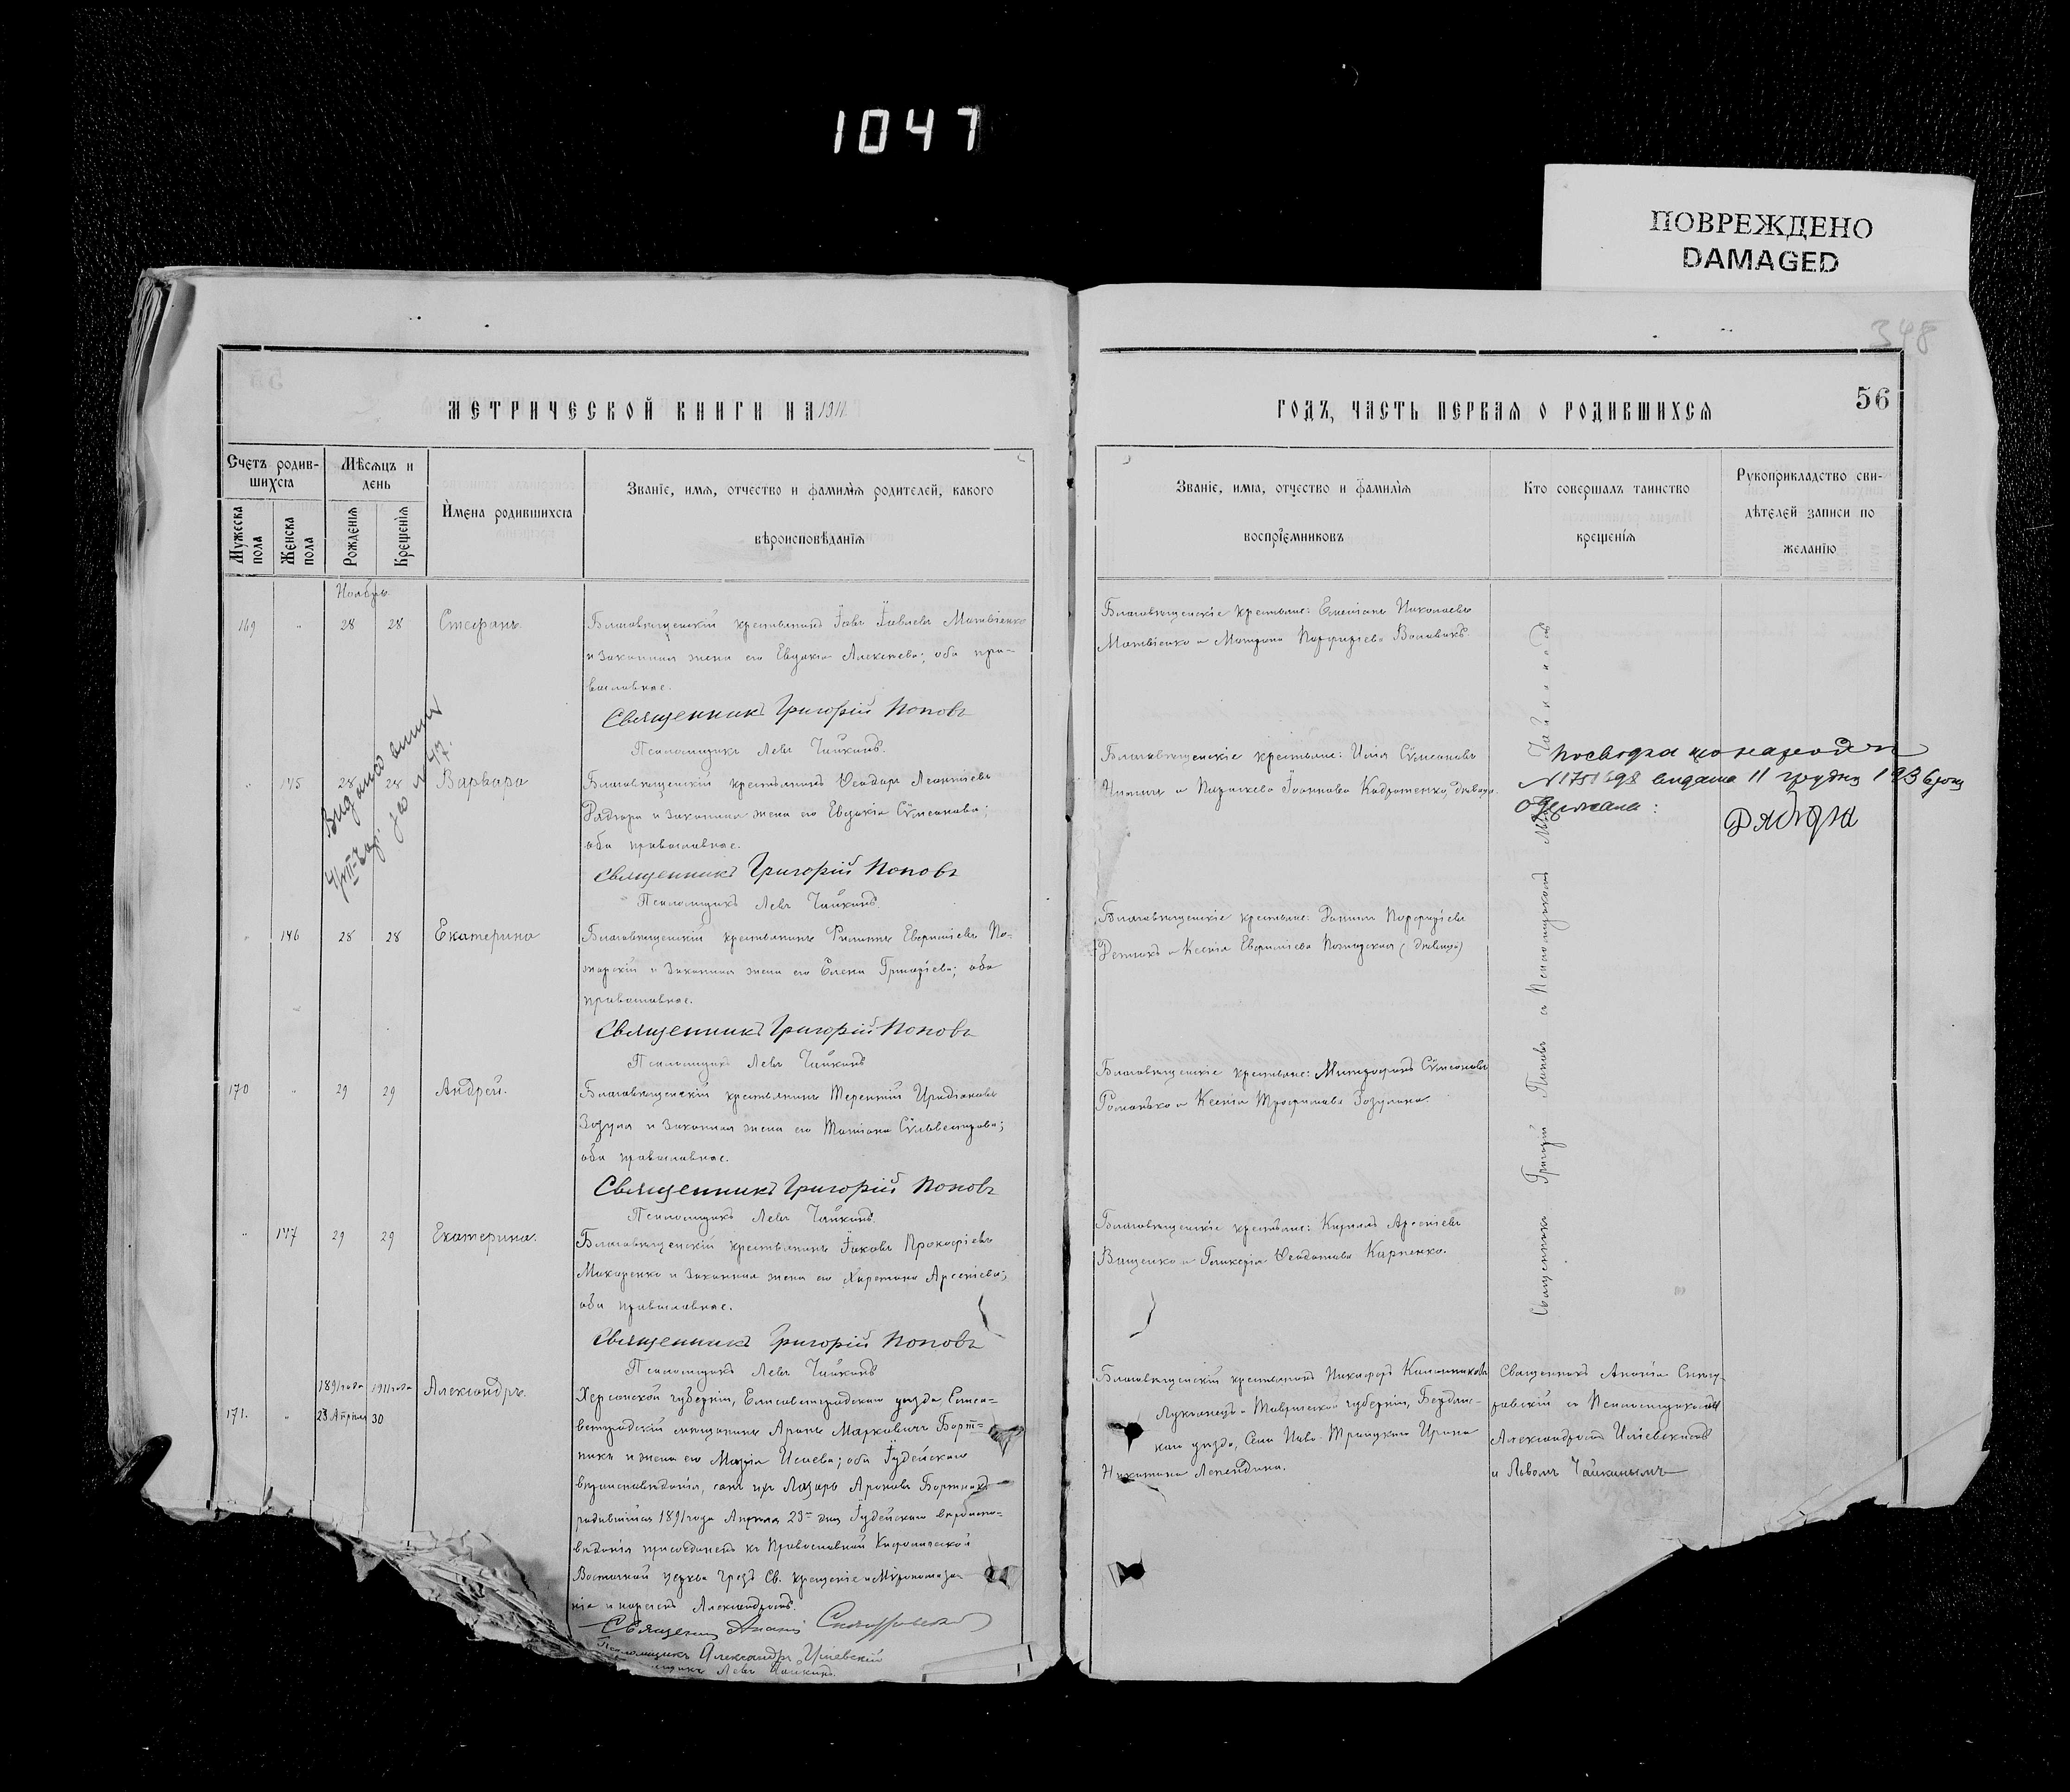 1047
ПОВРЕЖДЕНО
DAMAGED
348
56
МЕТРИЧЕСКОЙ КНИГИ НА 1911
ГОДЪ, ЧАСТЬ ПЕРВАЯ О РОДИВШИХСЯ
Счетъ родив-
шихся
Мужеска
пола
Женска
пола
Мѣсяцъ и
день
Рожденія
Крещенія
Имена родившихся
Званіе, имя, отчество и фамилія родителей, какого
вѣроисповѣданія
Званіе, имя, отчество и фамилія
воспріемниковъ
Кто совершалъ таинство
крещенія
Рукоприкладство сви-
дѣтелей записи по
желанію
Ноябрь
169 " 28 28 Стефанъ.
Благовѣщенскій крестьянинъ Іовъ Іовлевъ Матвіенко
и законная жена его Евдокія Алексѣева; оба пра-
вославные.
Священникъ Григорій Поповъ
Псаломщикъ Левъ Чайкинъ.
Благовѣщенскіе крестьяне: Емеліанъ Николаевъ
Матвіенко и Матрона Порфиріева Воловикъ.
" 145 28 28 Варвара
Благовѣщенскій крестьянинъ Ѳеодоръ Леонтіевъ
Рядчора и законная жена его Евдокія Сѵмеонова;
оба православные.
Священникъ Григорій Поповъ
Псаломщикъ Левъ Чайкинъ.
Благовѣщенскіе крестьяне: Илія Сѵмеоновъ
и Параскева Іоаннова девица.
11 грудня 1936 року
" 146 28 28 Екатерина
Благовѣщенскій крестьянинъ Филиппъ Евфиміевъ По-
жарскій и законная жена его Елена Григоріева; оба
православные.
Священникъ Григорій Поповъ
Псаломщикъ Левъ Чайкинъ
Благовѣщенскіе крестьяне: Даніилъ Порфиріевъ
и Ксенія Евфиміева Пожарская (дѣвица)
170 " 29 29 Андрей.
Благовѣщенскій крестьянинъ Терентій Иродіоновъ
Зозуля и законная жена его Татіана Сѵльвестрова;
оба православные.
Священникъ Григорій Поповъ
Псаломщикъ Левъ Чайкинъ.
Благовѣщенскіе крестьяне: Митрофанъ Сѵмеоновъ
Романько и Ксенія Трофимова Зозулина
" 147 29 29 Екатерина.
Благовѣщенскій крестьянинъ Іаковъ Прокофіевъ
Макаренко и законная жена его Харитина Арсеніева;
оба православные.
Священникъ Григорій Поповъ
Псаломщикъ Левъ Чайкинъ
Благовѣщенскіе крестьяне: Кириллъ Арсеніевъ
Ващенко и Гликерія Ѳеодотова Карпенко.
Священникъ Григорій Поповъ съ Псаломщикомъ
1891 года 1911 года Александръ.
171. " 23 Апрѣля 30
Херсонской губерніи, Елисаветградскаго уѣзда, Елиса-
ветградскій мѣщанинъ Аронъ Марковичъ Борт-
никъ и жена его Марія Исаева; оба Іудейскаго
вѣроисповѣданія, сынъ ихъ Лазарь Ароновъ Бортникъ
родившійся 1891 года Апрѣля 23 дня Іудейскаго вѣроиспо-
вѣданія присоединенъ къ Православной Каѳолической
Восточной церкви чрезъ Св. крещеніе и Мѵропомаза-
ніе и нареченъ Александромъ.
Священникъ Ананія
Псаломщикъ Александръ Иліевскій
Левъ Чайкинъ.
Благовѣщенскій крестьянинъ Никифоръ
и Таврической губерніи, Бердянс-
каго уѣзда, Села Ново-Троицкаго Ирина
Никитина
Священникъ Ананія
съ Псаломщиками
Александромъ Иліевскимъ
и Львомъ Чайкинымъ